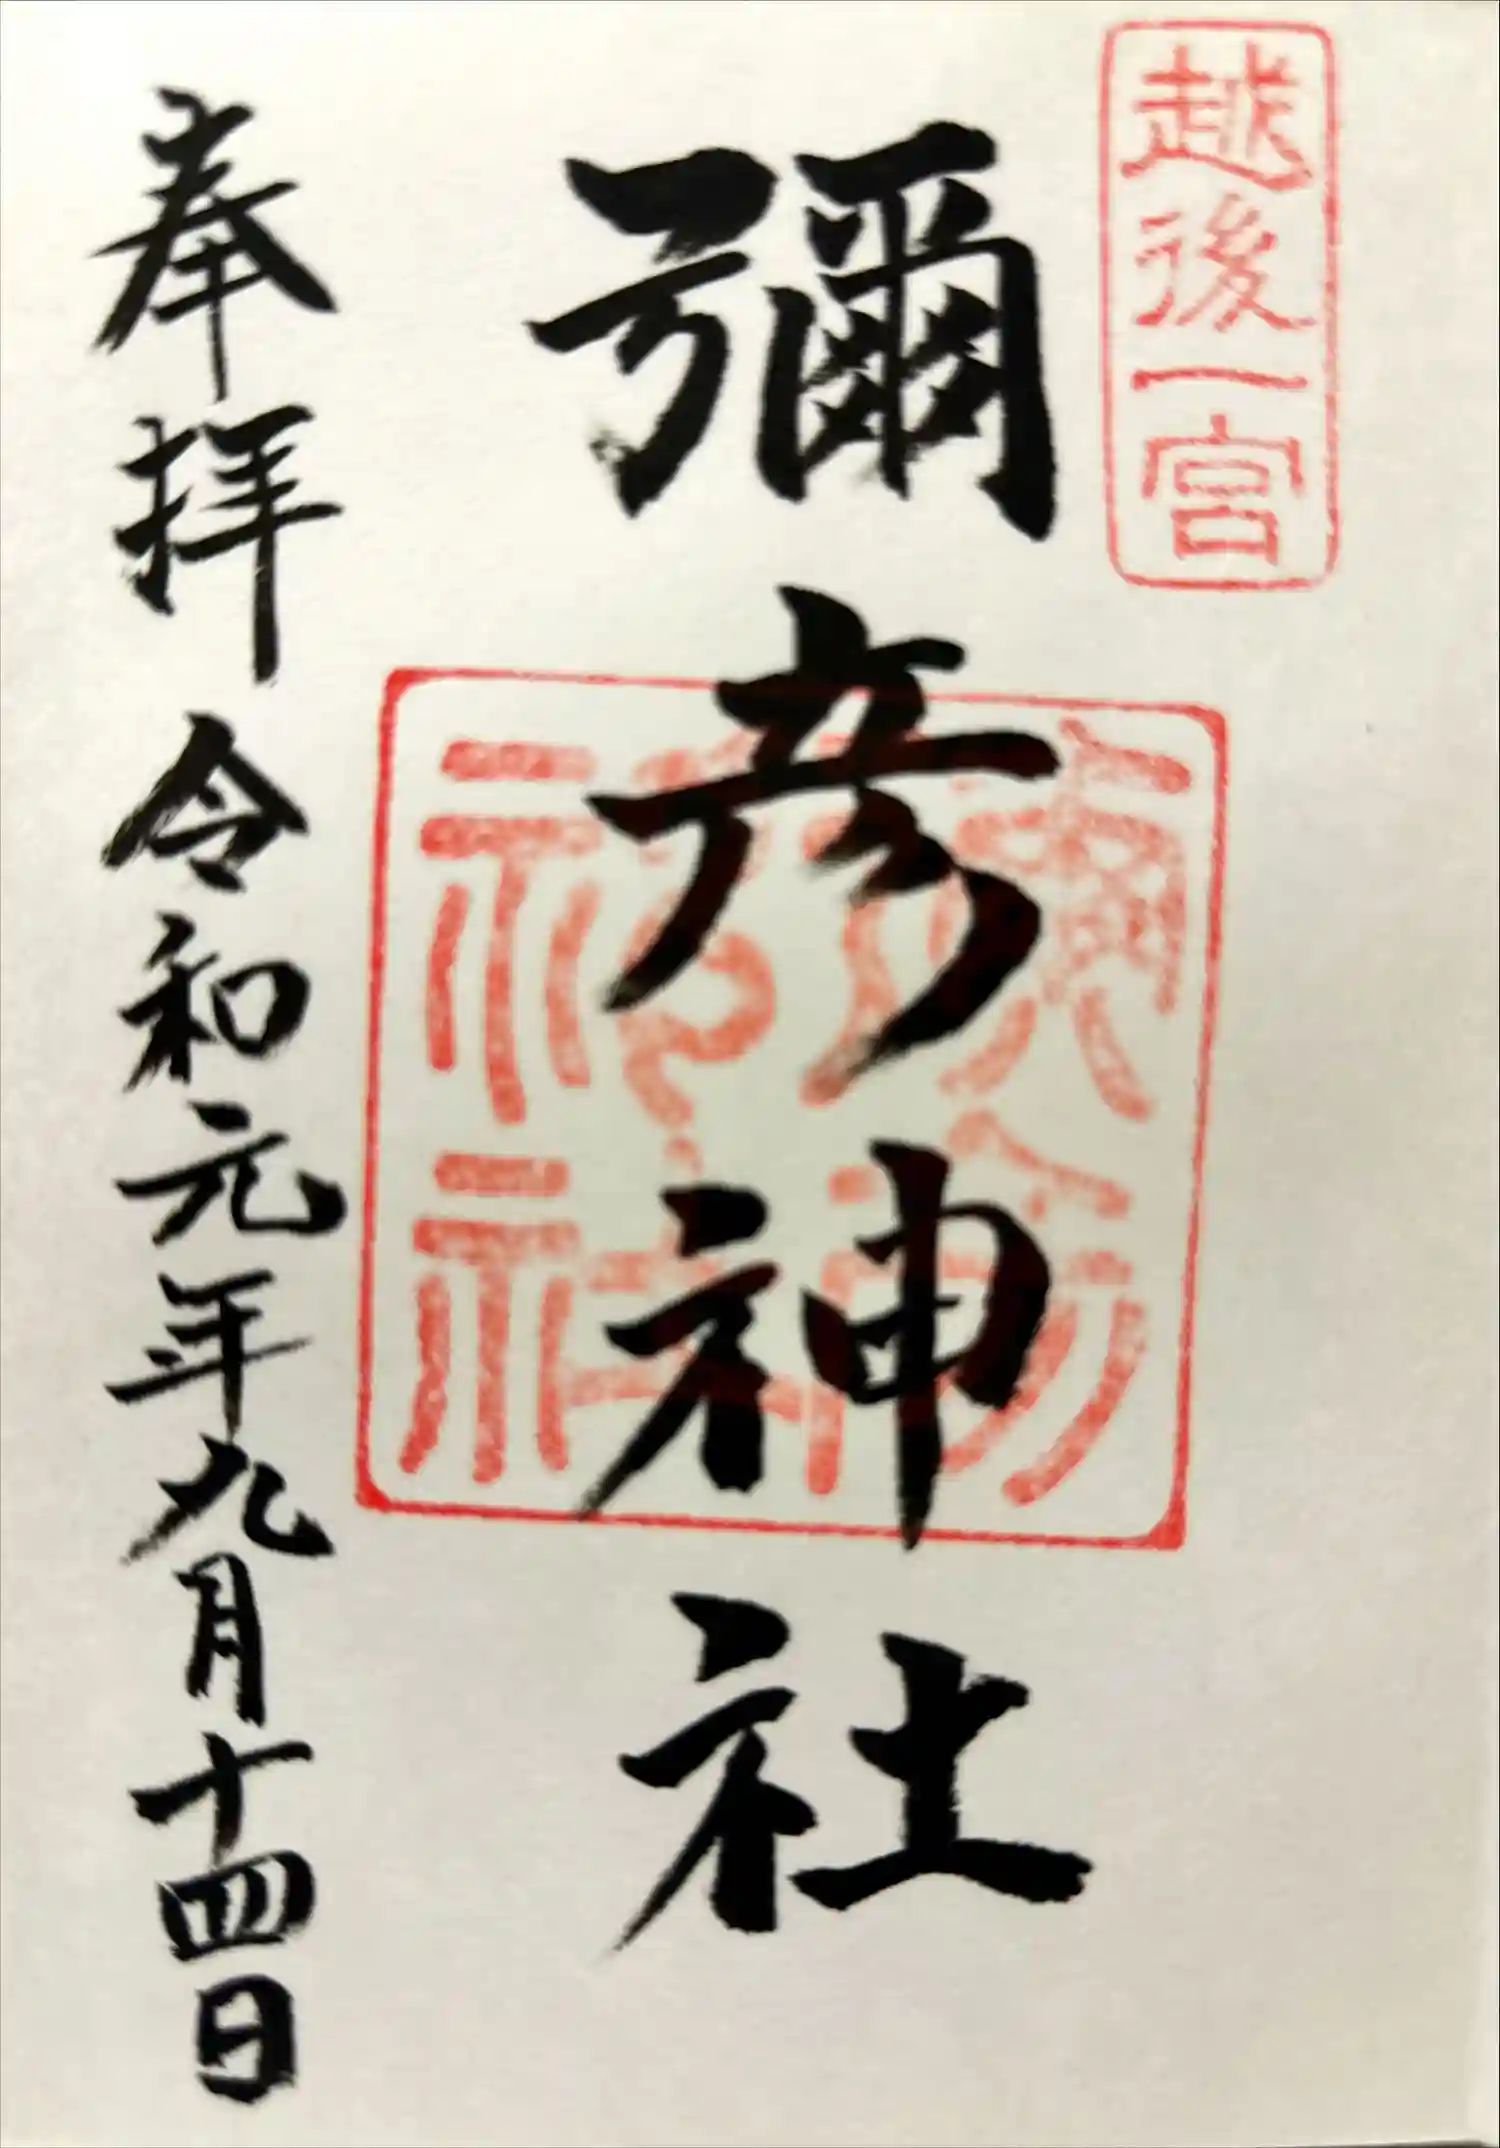 越後一宮
彌彦神社
奉拝 令和元年九月十四日